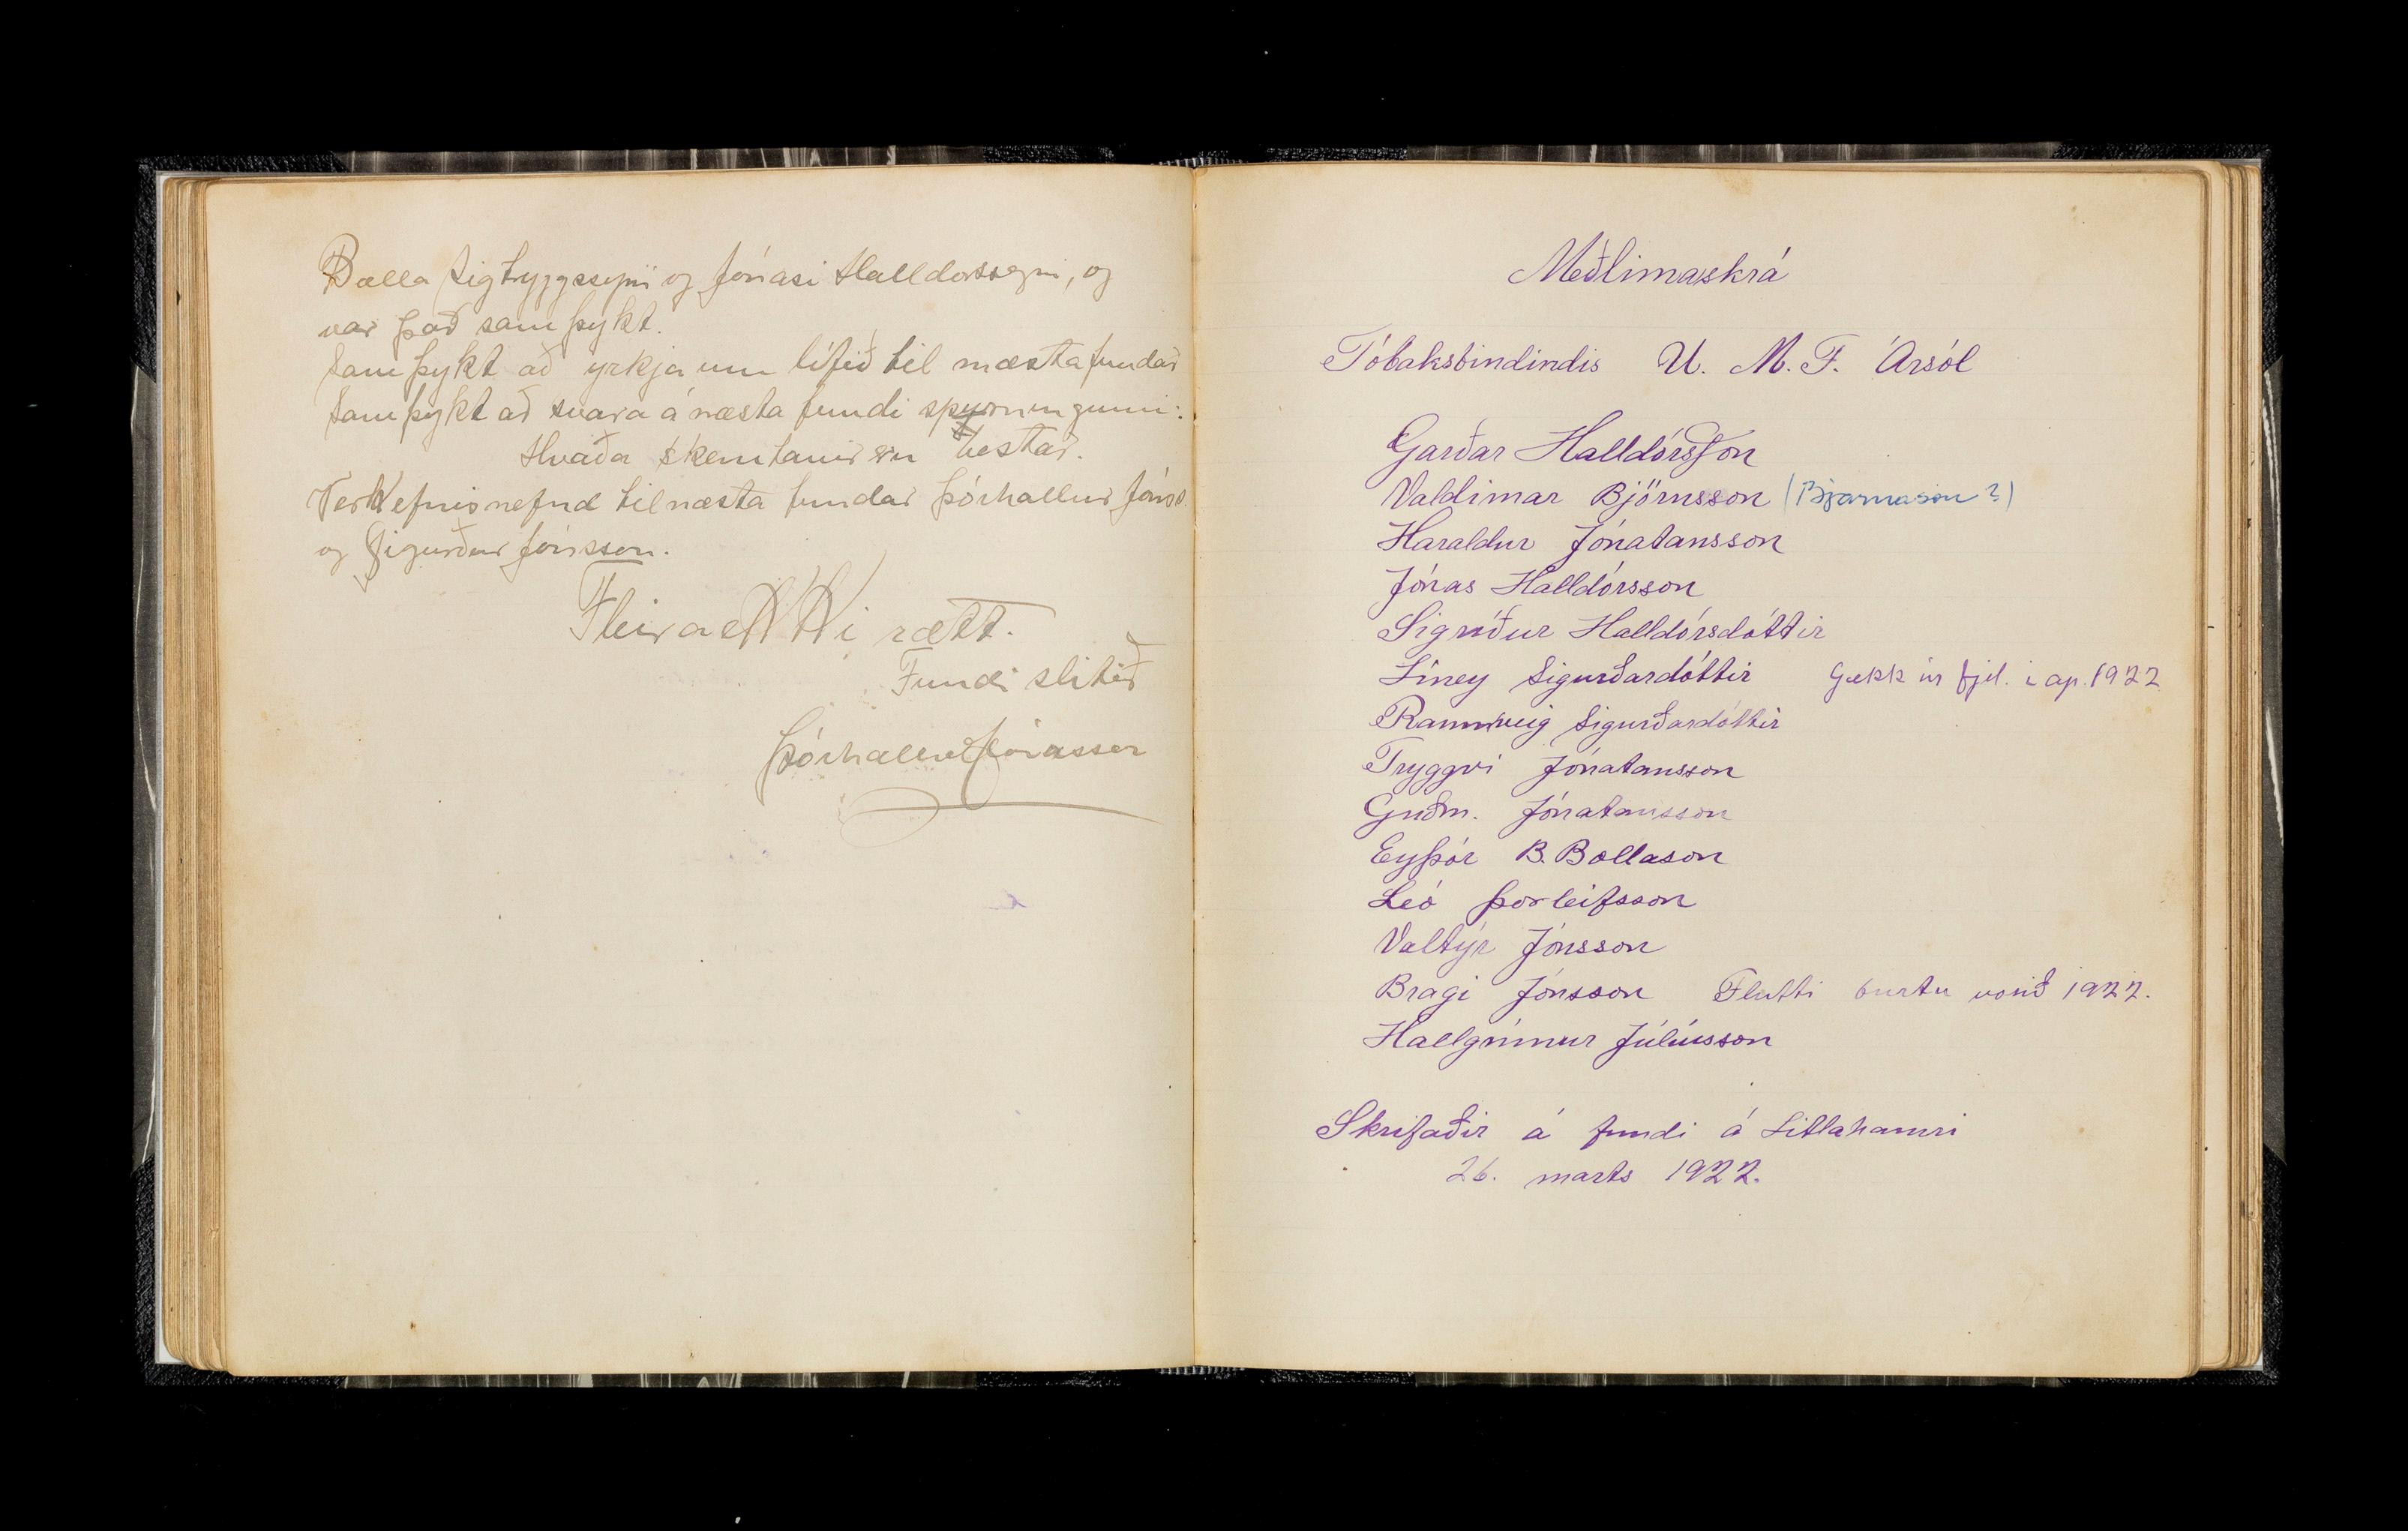 Bolla Sigtryggssyni og Jónasi Halldorssyni, og
var það samþykt.
Samþykt að yrkja um lífið til næsta fundar
Samþykt að svara á næsta fundi spurningunni:
Hvaða skemtanir eru bestar.
Verkefnisnefnd til næsta fundar Þórhallur Jónss.
og Sigurður Jónsson.
Fleira ekki rætt.
Fundi slitið
Þórhallur Jónasson
Meðlimaskrá
Tóbaksbindindis U. M. F. Ársól
Garðar Halldórsson
Valdimar Björnsson (Bjarnason?)
Haraldur Jónatansson
Jónas Halldórsson
Sigríður Halldórsdóttir
Líney Sigurðardóttir Gekk úr fjel. í ap. 1922
Rannveig Sigurðardóttir
Tryggvi Jónatansson
Guðm. Jónatansson
Eyþór B. Bollason
Leó Þorleifsson
Valtýr Jónsson
Bragi Jónsson Flutti burtu vorið 1922.
Hallgrímur Júlíusson
Skrifaðir á fundi á Litlahamri
26. marts 1922.